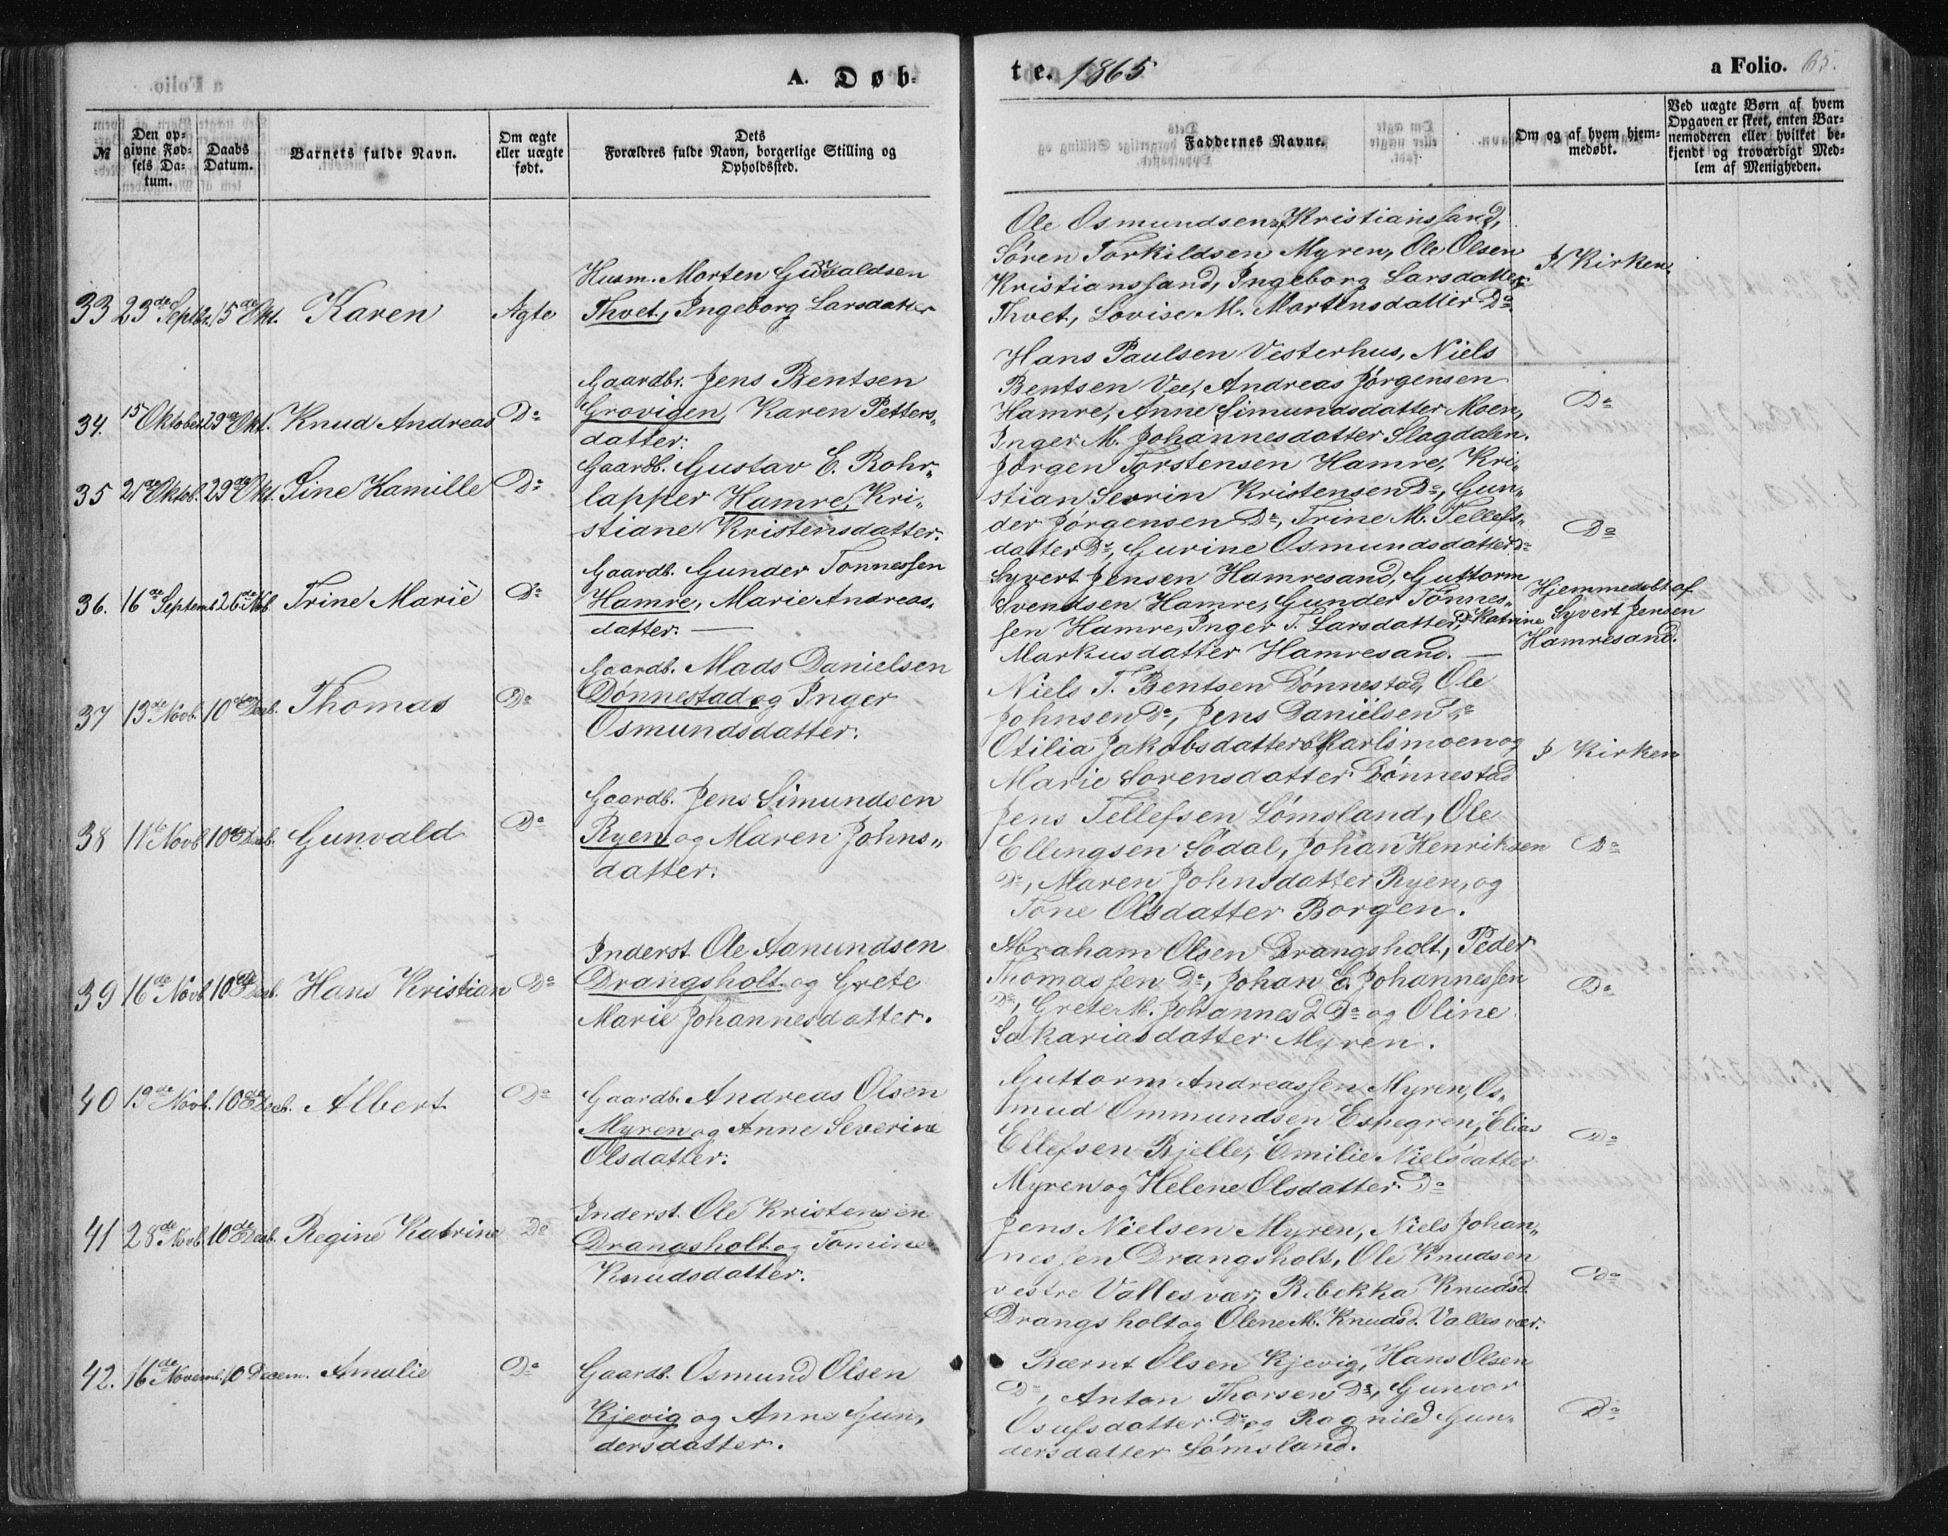 A. Døb-
№
Den op-
givne Fød-
sels Da-
tum.
Daabs
Datum.
Barnets fulde Navn.
Om ægte
eller uægte
født.
Dets
Forældres fulde Navn, borgerlige Stilling og
Opholdssted.
33 23de Septbr. 15de Okt. Karen Ægte
Husm. Morten Gunvaldsen
Thvet, Ingeborg Larsdatter
34. 15 Oktober 29de Okt. Knud Andreas Do
Gaardbr. Jens Bentsen
Grovigen, Karen Petters„
datter.
35 21de Oktob. 29de Okt. Sine Kamille Do
Gaardb. Gustav E. Rohr„
lapper Hamre, Kri„
stiane Kristensdatter.
36. 16de Septemb 26de Nob. Trine Marie Do
Gaardb. Gunder Tønnessen
Hamre, Marie Andreas„
datter. —
37 13de Novb. 10de Decb. Thomas Do
Gaardb. Mads Danielsen
Dønnestad og Inger
Osmundsdatter.
38 11te Novb 10de Decb. Gunvald Do
Gaardb. Jens Simundsen
Ryen og Maren Johns„
datter.
39 16de Novb 10de Decb. Hans Kristian Do
Inderst Ole Aanundsen
Drangsholt og Grete
Marie Johannesdatter.
40 19de Novb. 10de Decb. Albert Do
Gaardb. Andreas Olsen
Myren og Anne Severine
Olsdatter.
41 28de Novb. 10de Decb. Regine Katrine Do
Inderst. Ole Kristensen
Drangsholt og Tomine
Knudsdatter.
42. 16de Novemb. 10 Decem. Amalie Do
Gaardb. Osmund Olsen
Kjevig og Anne Gun„
dersdatter.
te. 1865 a Folio. 65.
Faddernes Navne.
Om og af hvem hjem-
medøbt.
Ved uægte Børn af hvem
Opgaven er skeet, enten Bar-
nemoderen eller hvilket be-
kjendt og troværdigt Med-
lem af Menigheden.
Ole Osmundsen af Kristianssand,
Søren Torkildsen Myren, Ole Olsen
Kristianssand, Ingeborg Larsdatter
Thvet, Lovise M. Mortensdatter Do.
I Kirken.
Hans Paulsen Vesterhus, Niels
Bentsen Vee, Andreas Jørgensen
Hamre, Anne Simundsdatter Moen,
Inger M. Johannesdatter Slagdalen.
Do
Jørgen Torstensen Hamre, Kri„
stian Severin Kristensen Do, Gun„
der Jørgensen Do, Trine M. Tellefs„
datter Do, Gurine Osmundsdatter Do
Do
Syvert Jensen Hamresand, Guttorm
Svendsen Hamre, Gunder Tønnes„
sen Hamre, Inger T. Larsdatter, Do Katrine
Markusdatter Hamresand. —
Hjemmedøbt af
Syvert Jensen
Hamresand.
Niels T. Bentsen Dønnestad, Ole
Johnsen Do, Jens Danielsen Do
Otilia Jakobsdatter af Karlsmoen og
Marie Sørensdatter Dønnestad
I Kirken
Jens Tellefsen Lømsland, Ole
Ellingsen Sødal, Johan Henriksen
Do, Maren Johnsdatter Ryen, og
Tone Olsdatter Borgen.
Do
Abraham Olsen Drangsholt, Peder
Thomassen Do, Johan E. Johannessen
Do, Grete M. Johannesd Do og Oline
Sakariasdatter Myren.
Do
Guttorm Andreassen Myren, Os„
mud Ommundsen Espegren, Elias
Ellefsen Bjelle, Emilie Nielsdatter
Myren og Helene Olsdatter Do
Do
Jens Nielsen Myren, Niels Johan„
nessen Drangsholt, Ole Knudsen
vestre Vallesvær, Rebekka Knudsd
Drangsholt og Olene M. Knudsd. Vallesvær.
Do
Bærnt Olsen Kjevig, Hans Olsen
Do, Anton Thorsen Do, Gunvor
Osufsdatter Do og Rognild Gun„
dersdatter Lømsland.
Do